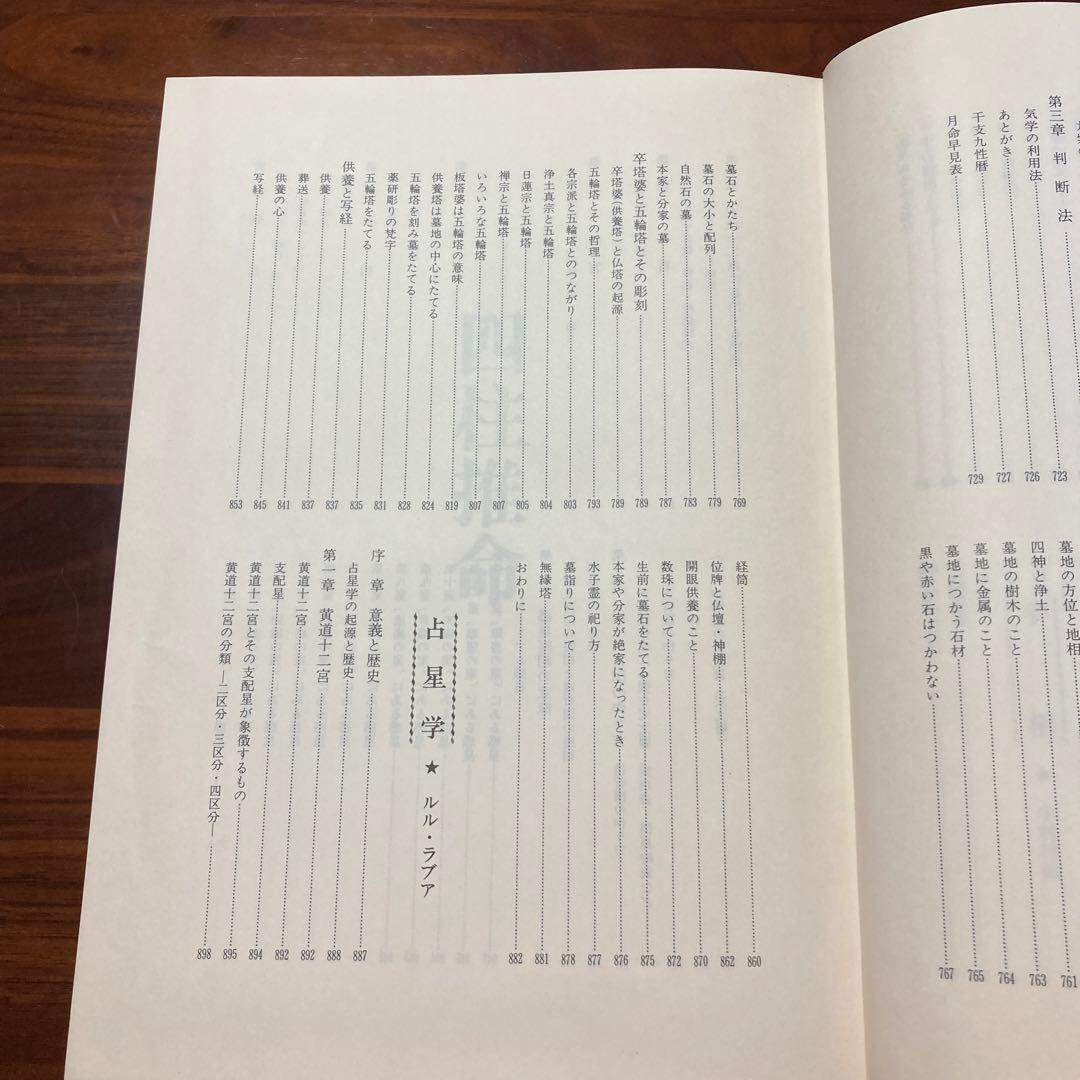 第三章 判断法
気学の利用法 723
あとがき 726
干支九性暦 727
月命早見表 729
墓地の方位と地相
四神と浄土 761
墓地の樹木のこと 763
墓地に金属のこと 764
墓地につかう石材 765
黒や赤い石はつかわない 767
墓石とかたち 769
墓石の大小と配列 779
自然石の墓 783
本家と分家の墓 787
卒塔婆と五輪塔とその彫刻 789
卒塔婆(供養塔)と仏塔の起源 789
五輪塔とその哲理 793
各宗派と五輪塔とのつながり 803
浄土真宗と五輪塔 804
日蓮宗と五輪塔 805
禅宗と五輪塔 807
いろいろな五輪塔 807
板塔婆は五輪塔の意味 819
供養塔は墓地の中心にたてる 824
五輪塔を刻み墓をたてる 828
薬研彫りの梵字 831
五輪塔をたてる 835
供養と写経 837
供養 837
葬送 841
供養の心 845
写経 853
経筒 860
位牌と仏壇・神棚 862
開眼供養のこと 870
数珠について 872
生前に墓石をたてる 875
本家や分家が絶家になったとき 876
水子霊の祀り方 877
墓詣りについて 878
無縁塔 881
おわりに 882
占星学 ★ ルル・ラブア
序章 意義と歴史 887
占星学の起源と歴史 888
第一章 黄道十二宮 892
黄道十二宮 892
支配星 894
黄道十二宮とその支配星が象徴するもの 895
黄道十二宮の分類―二区分・三区分・四区分― 898